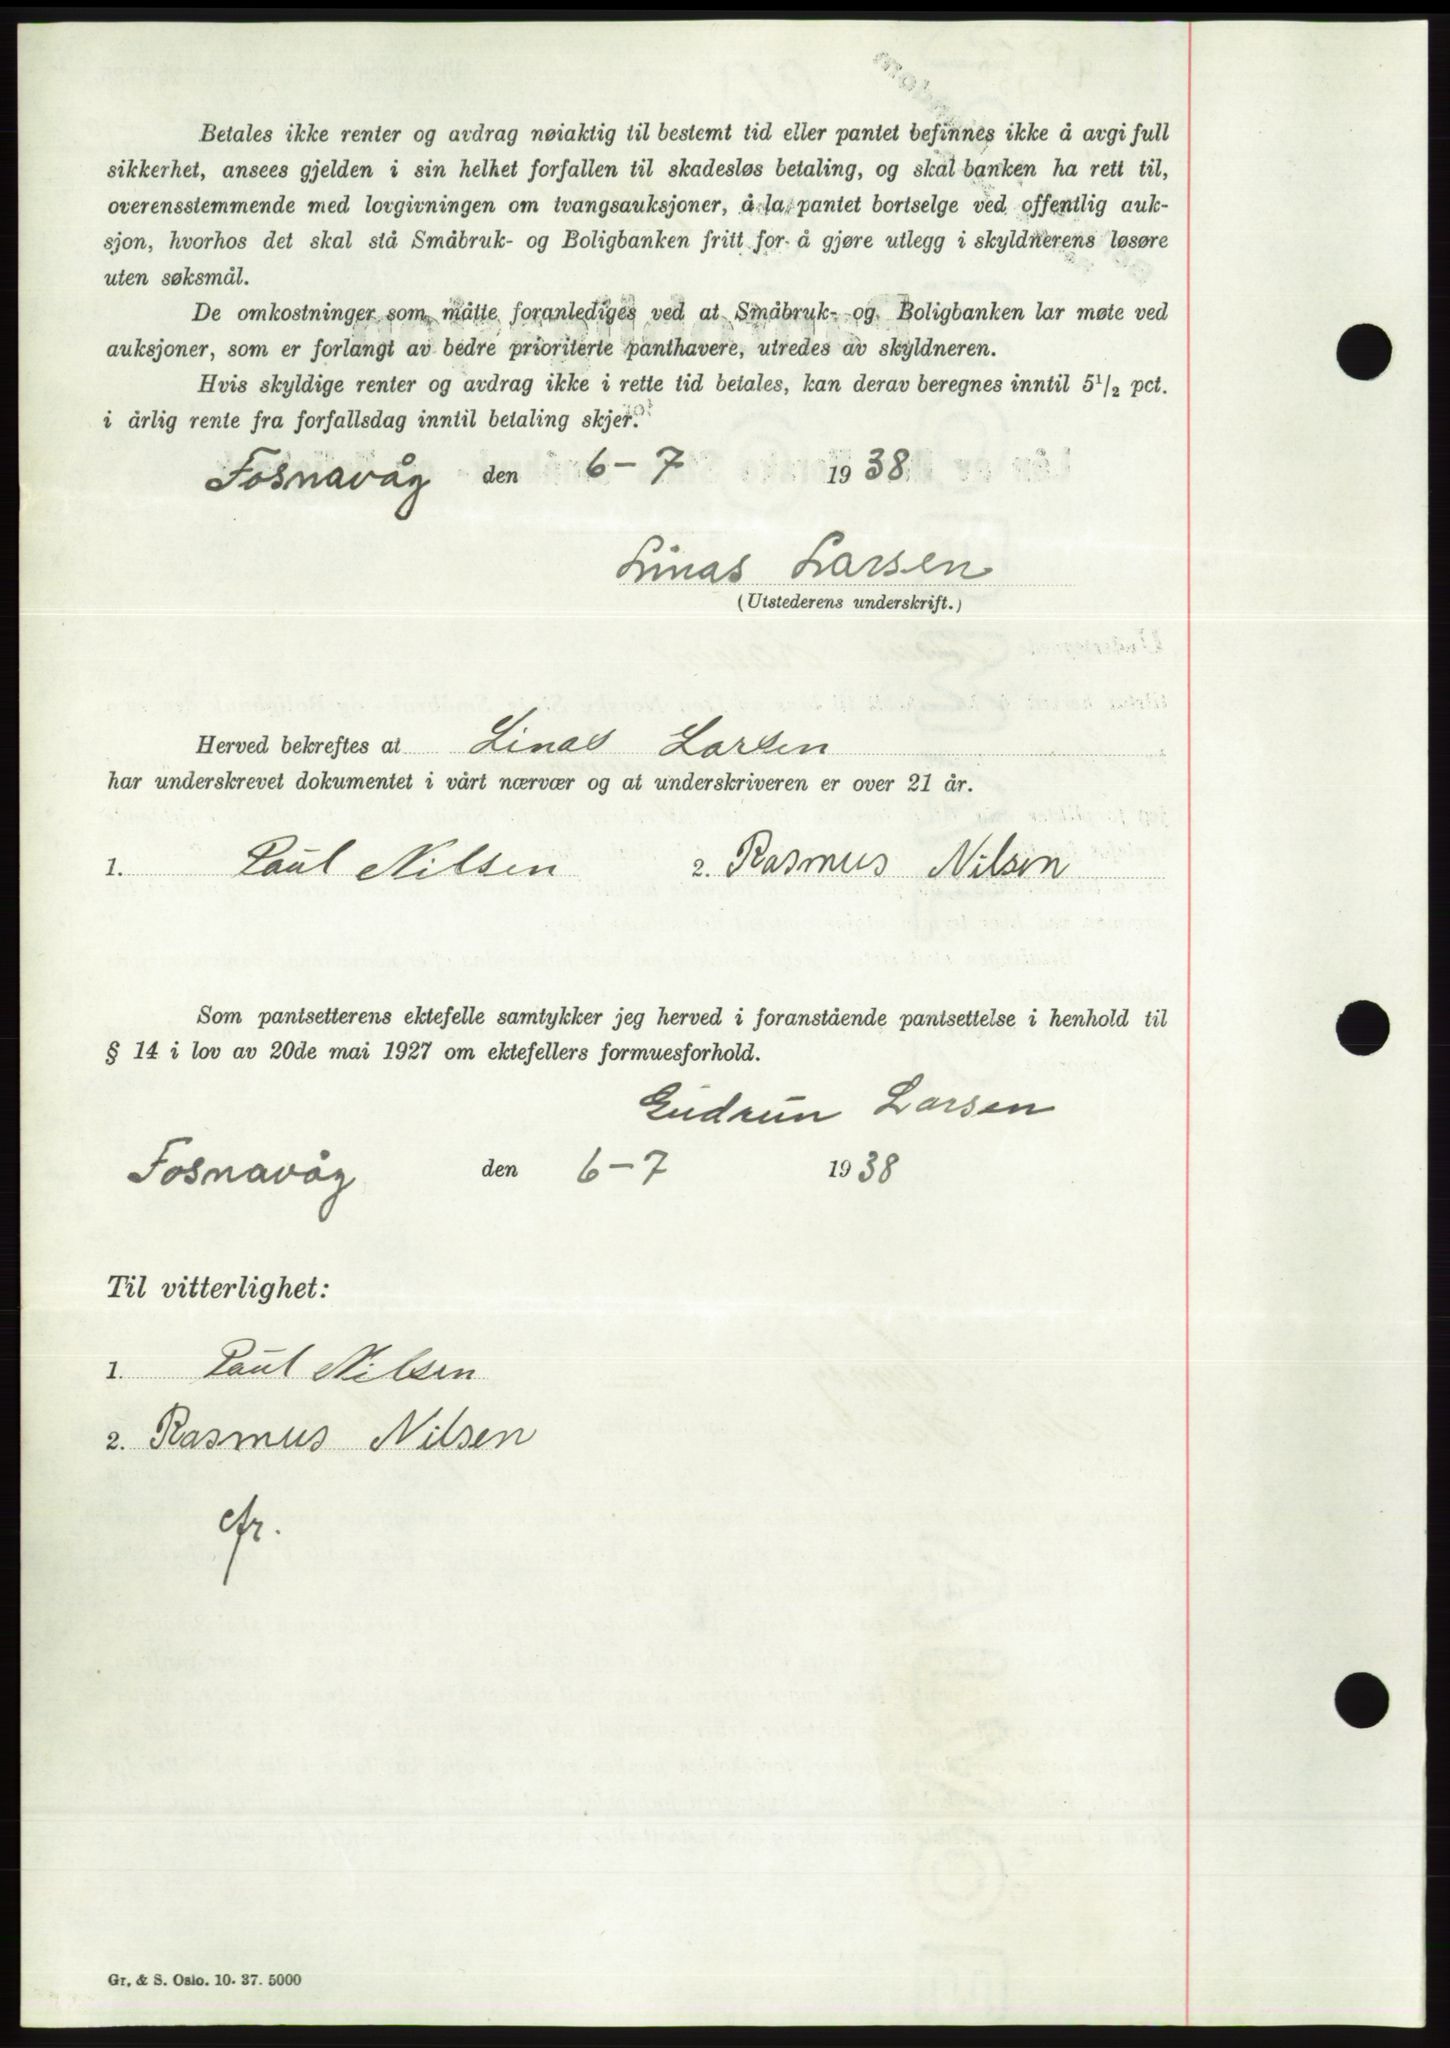 Betales ikke renter og avdrag nøiaktig til bestemt tid eller pantet befinnes ikke å avgi full
sikkerhet, ansees gjelden i sin helhet forfallen til skadesløs betaling, og skal banken ha rett til,
overensstemmende med lovgivningen om tvangsauksjoner, å la pantet bortselge ved offentlig auk-
sjon, hvorhos det skal stå Småbruk- og Boligbanken fritt for å gjøre utlegg i skyldnerens løsøre
uten søksmål.
De omkostninger som måtte foranlediges ved at Småbruk- og Boligbanken lar møte ved
auksjoner, som er forlangt av bedre prioriterte panthavere, utredes av skyldneren.
Hvis skyldige renter og avdrag ikke i rette tid betales, kan derav beregnes inntil 5 1/2 pct.
i årlig rente fra forfallsdag inntil betaling skjer.
Fosnavåg den 6-7 1938
Linas Larsen
(Utstederens underskrift.)
Herved bekreftes at Linas Larsen
har underskrevet dokumentet i vårt nærvær og at underskriveren er over 21 år.
1. Paul Nilsen 2. Rasmus Nilsen
Som pantsetterens ektefelle samtykker jeg herved i foranstående pantsettelse i henhold til
§ 14 i lov av 20de mai 1927 om ektefellers formuesforhold.
Gudrun Larsen
Fosnavåg den 6-7 1938
Til vitterlighet:
1. Paul Nilsen
2. Rasmus Nilsen
Gr. & S. Oslo. 10. 37. 5000